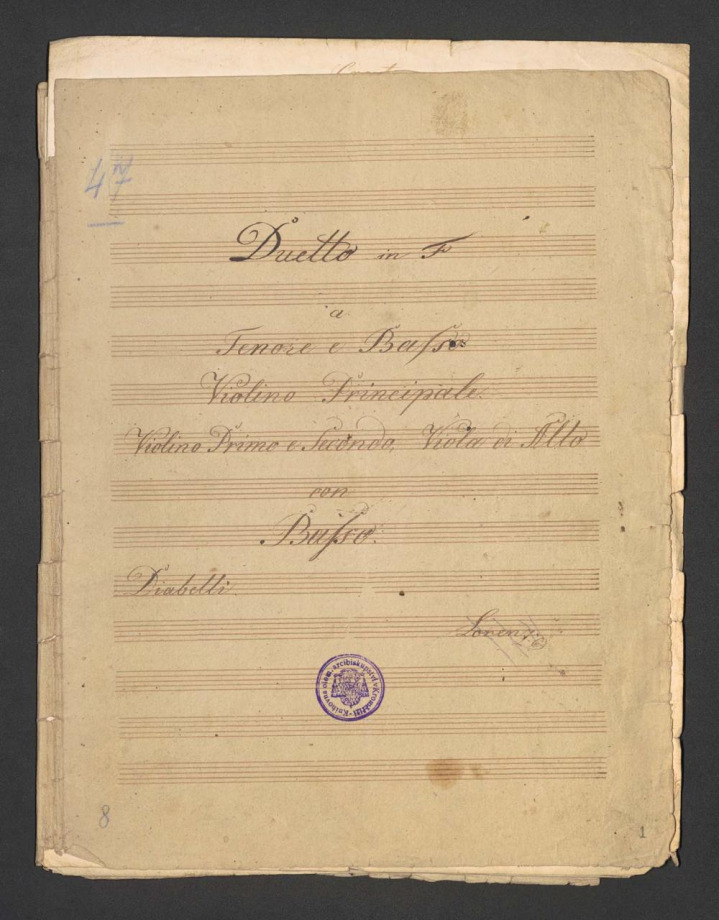 47
Duetto in F
a
Tenore e Baſso
Violino Principale.
Violino Primo e Secondo, Viola di Alto
con
Baſso.
Diabelli
Lorenz
Knihovna olom. arcibiskupství v Kroměříži
8
1